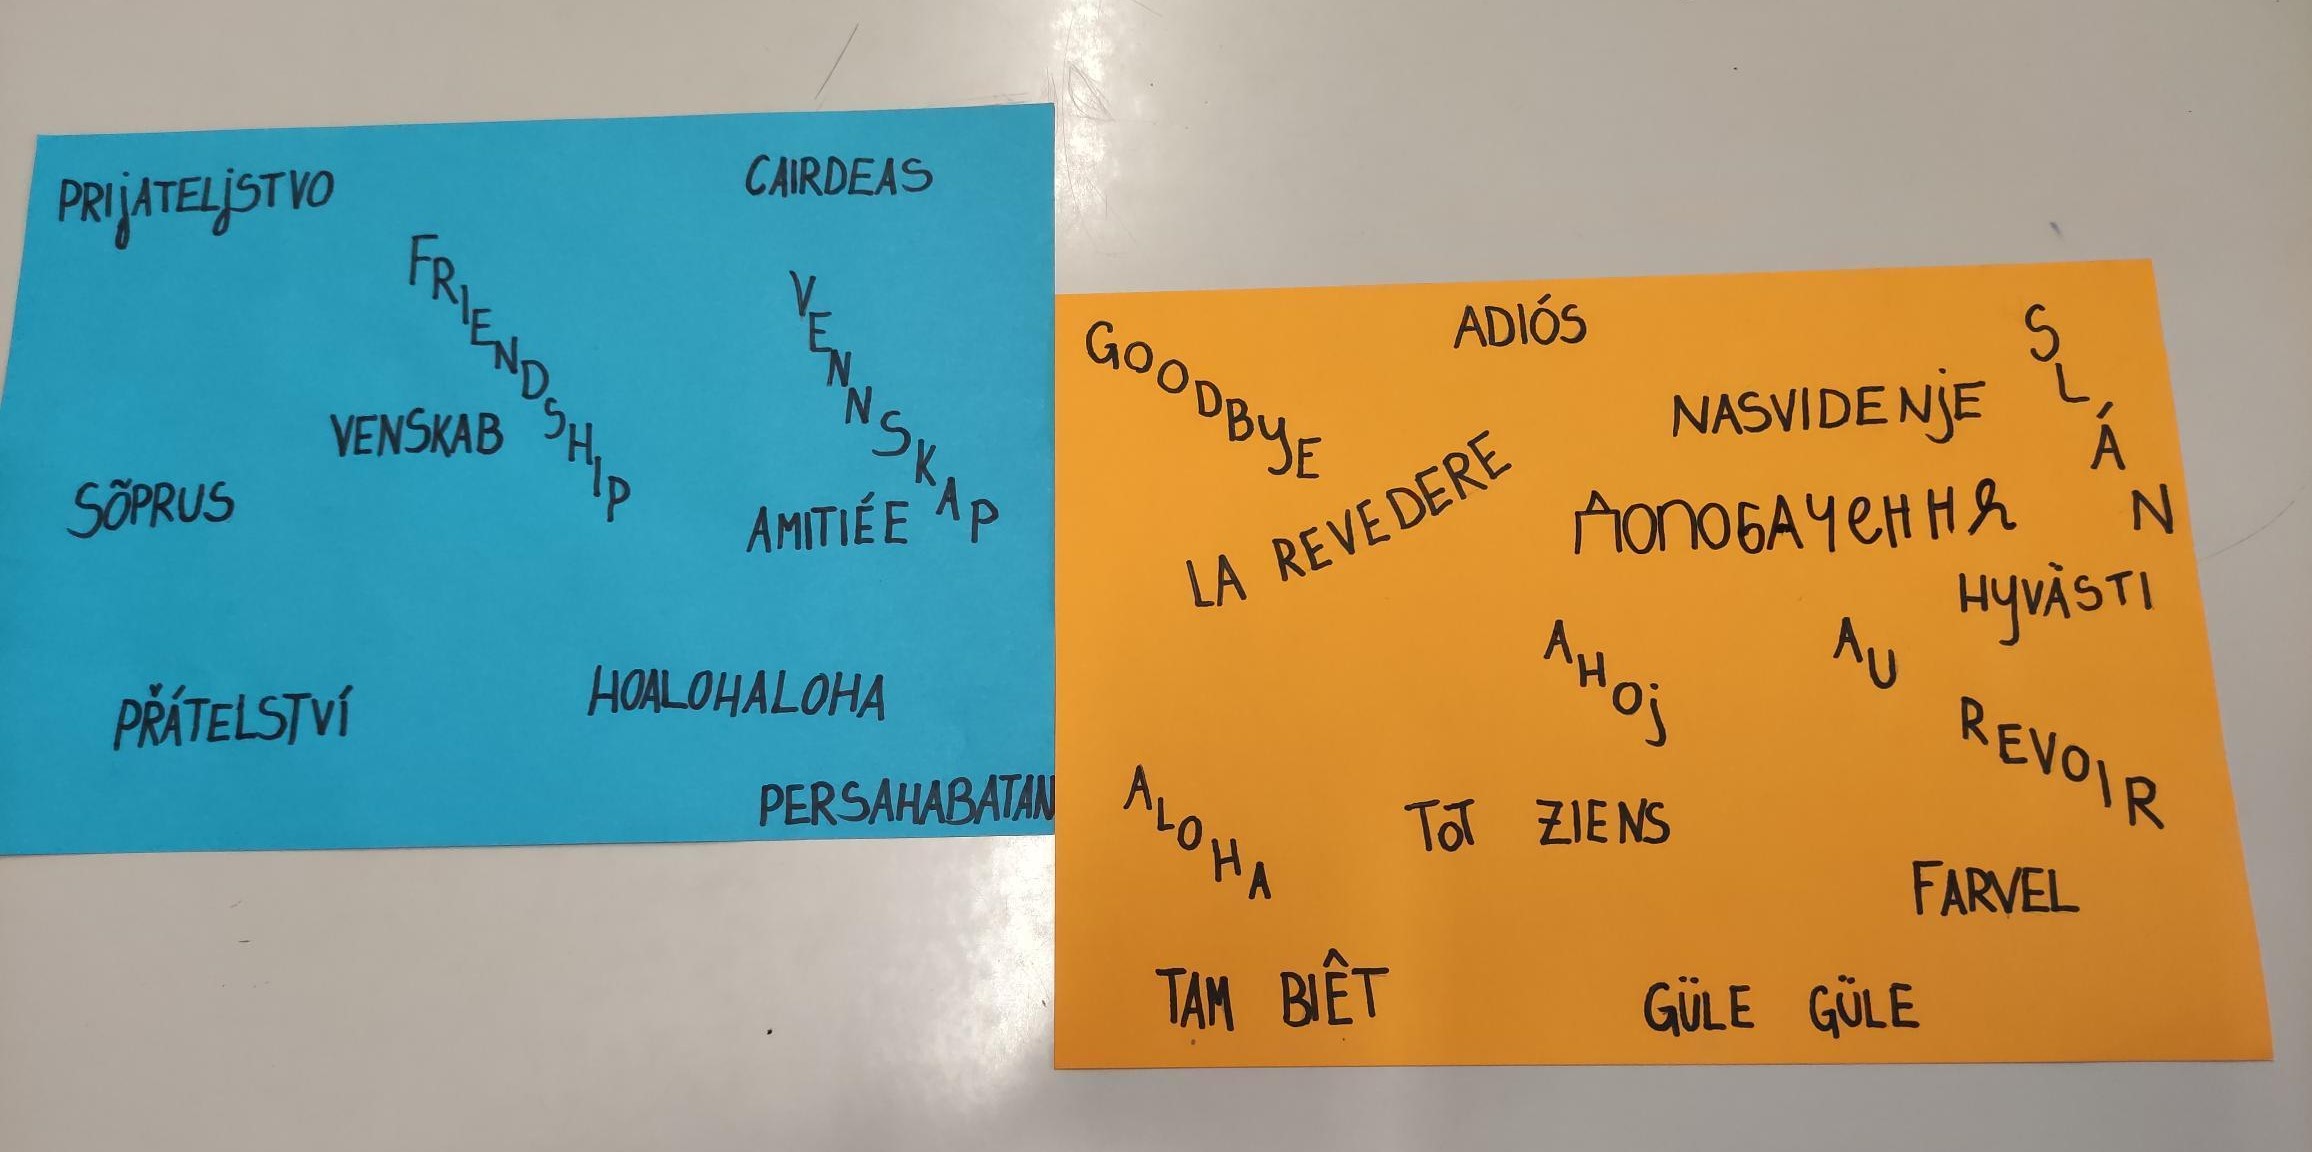 PRIJATELJSTVO
CAIRDEAS
FRIENDSHIP
VENNSKAP
VENSKAB
SÕPRUS
AMITIÉE
PŘÁTELSTVÍ
HOALOHALOHA
PERSAHABATAN
GOODBYE
ADIÓS
SLÁN
NASVIDENJE
LA REVEDERE
ДОПОБАЧЕННЯ
HYVÄSTI
AHOJ
AU REVOIR
ALOHA
TOT ZIENS
FARVEL
TẠM BIÊT
GÜLE GÜLE